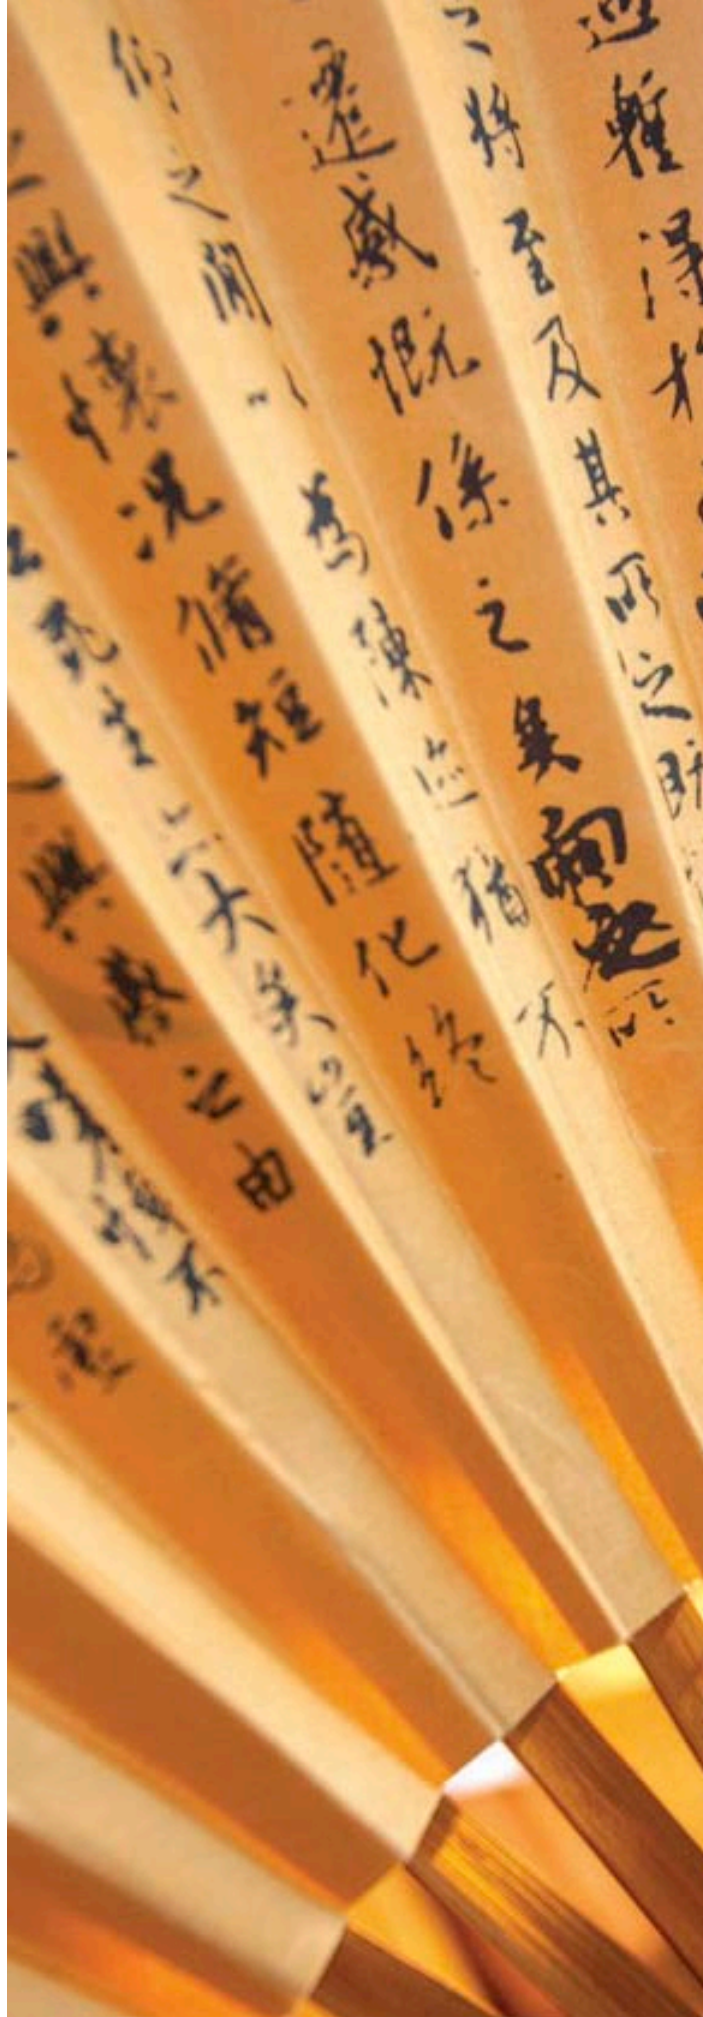 遇暫得於
之將至及其所之既
遷感慨係之矣向之所
仰之間以為陳迹猶不
之興懷況脩短隨化終
死生亦大矣豈
興感之由
嗟悼不
虛